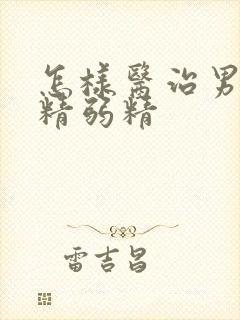 怎樣醫治男
精弱精
雷吉昌